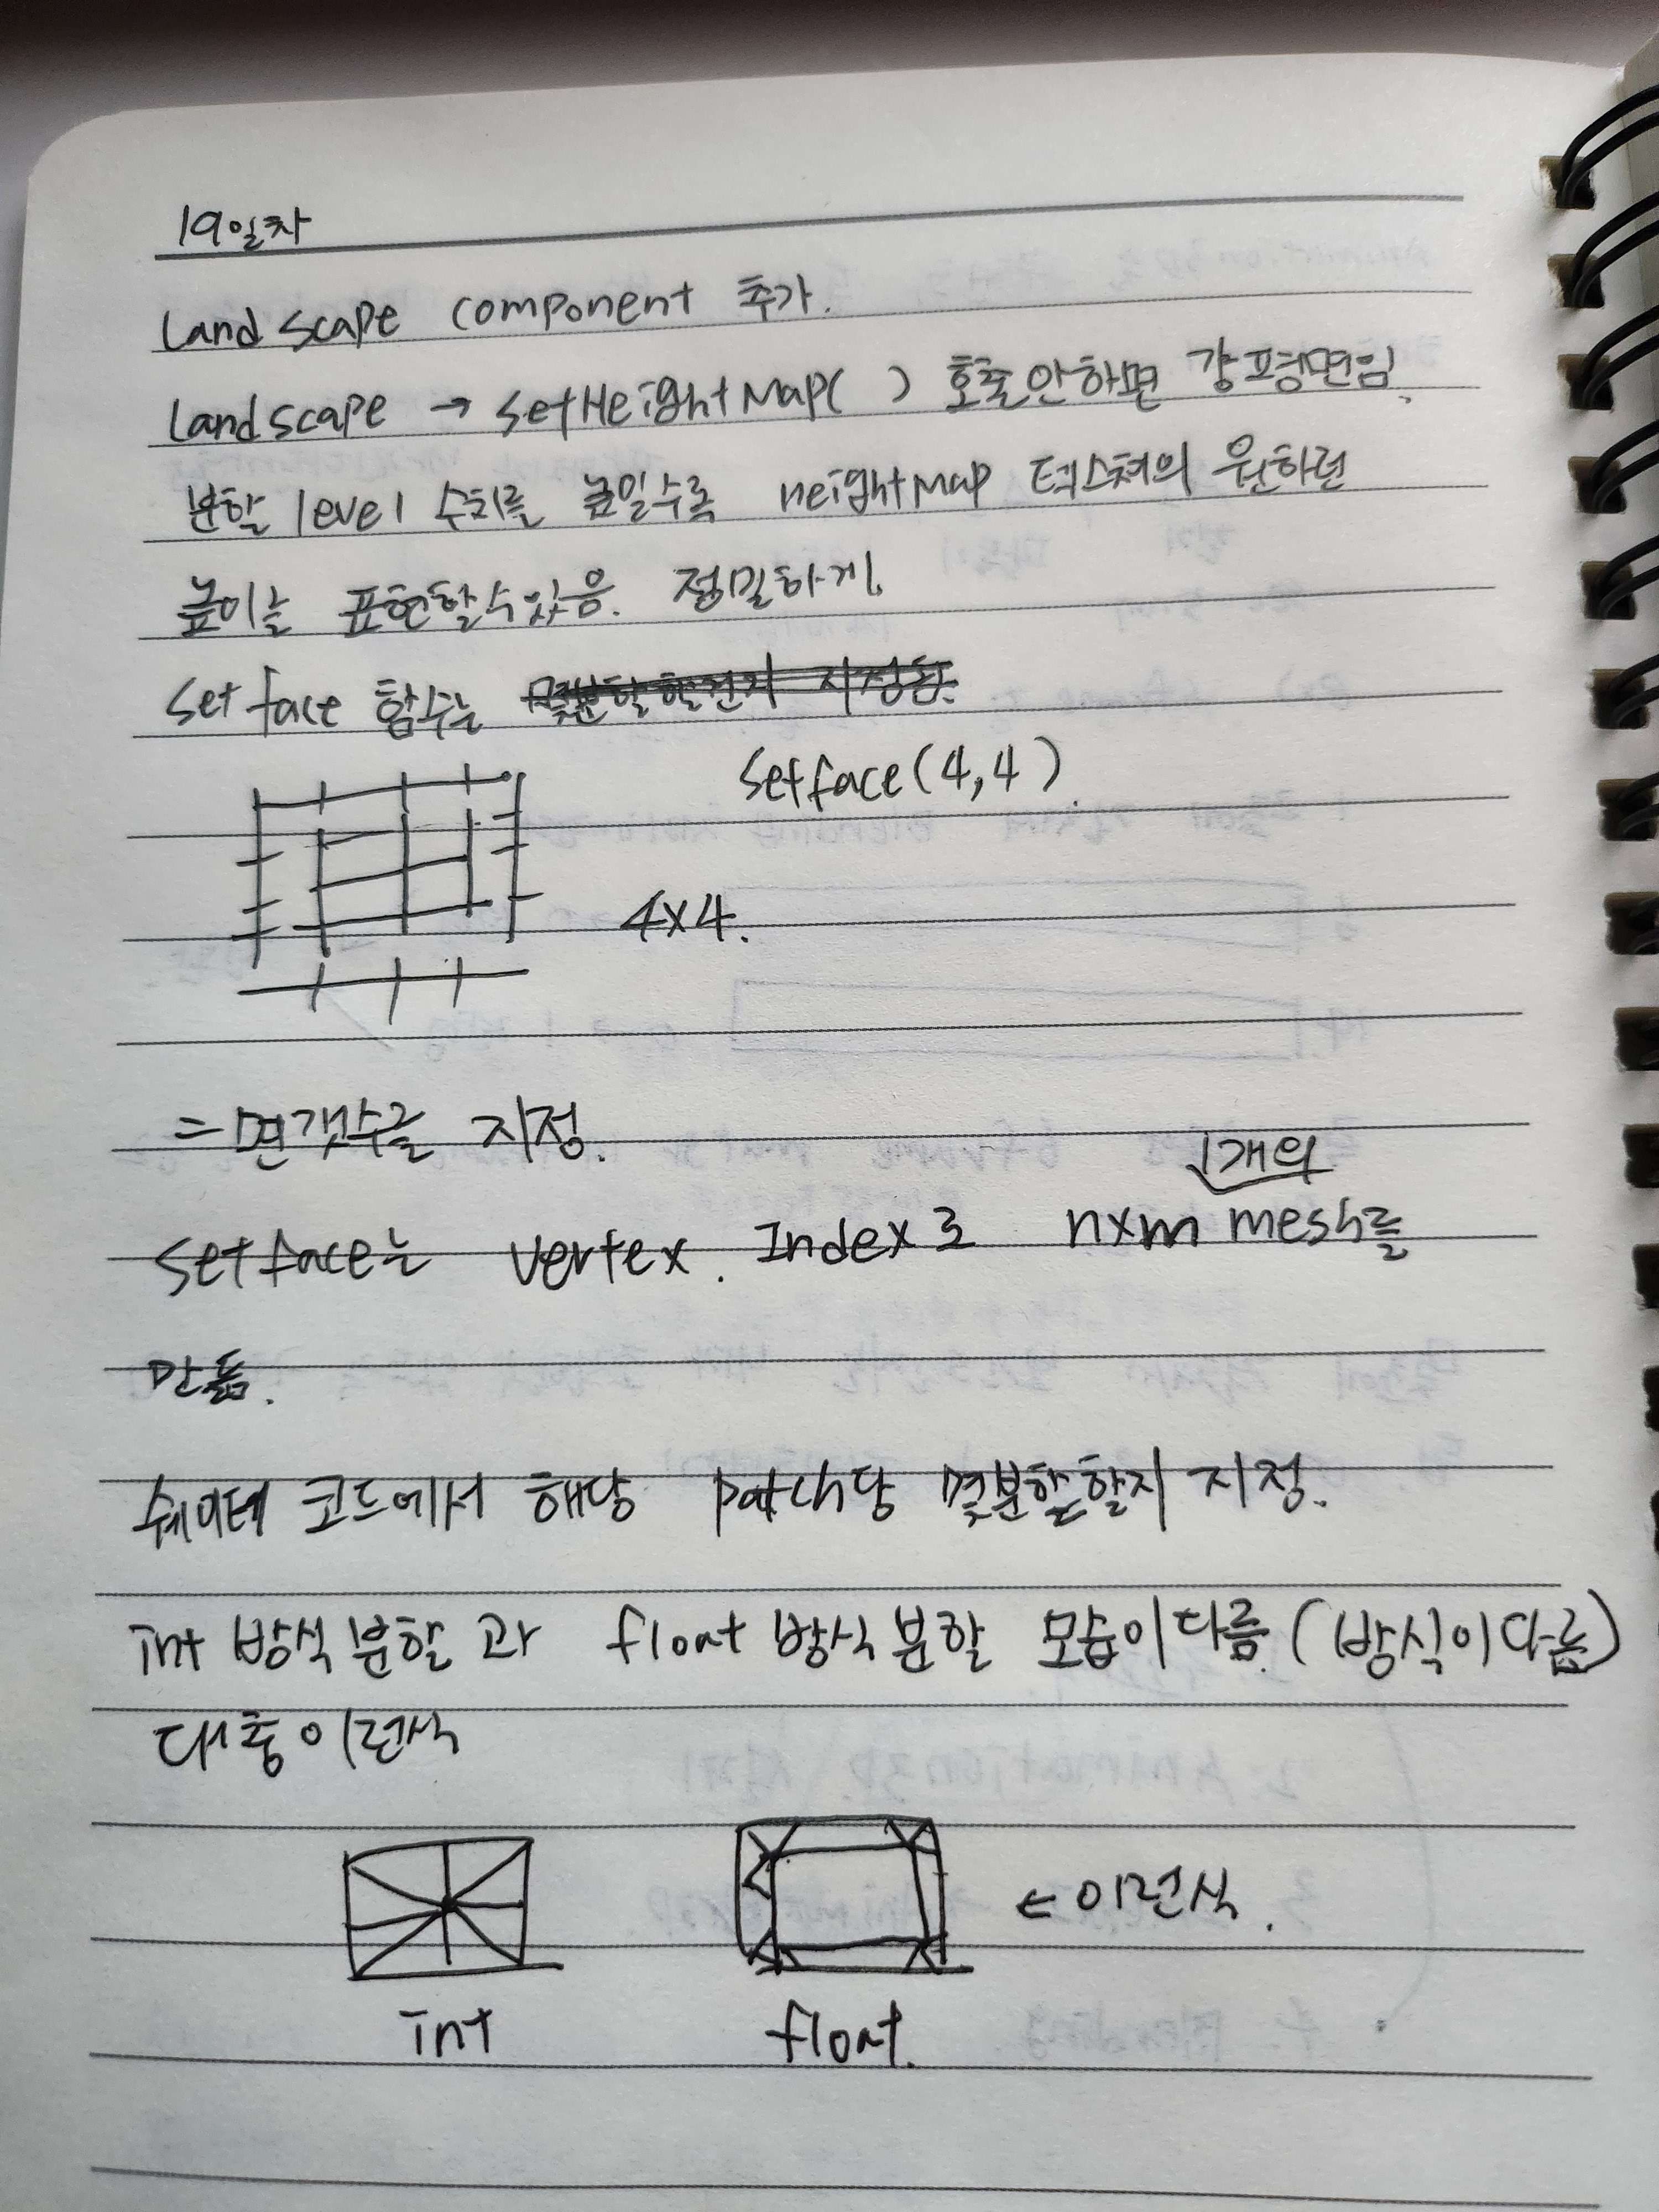 19일차
Landscape component 추가.
Landscape → SetHeightMap( ) 호출안하면 걍 평면임.
분할 level 수치를 높일수록 HeightMap 텍스쳐의 원하던
높이를 표현할수있음. 정밀하게.
setface 함수는 몇분할할건지 지정함.
setface(4,4).
4x4.
= 면갯수를 지정.
1개의
setface는 vertex. Index로 nxm mesh를
만듦.
쉐이더 코드에서 해당 patch당 몇분할할지 지정.
int 방식 분할 과 float 방식 분할 모습이 다름. (방식이 다름)
대충 이런식
← 이런식.
int float.